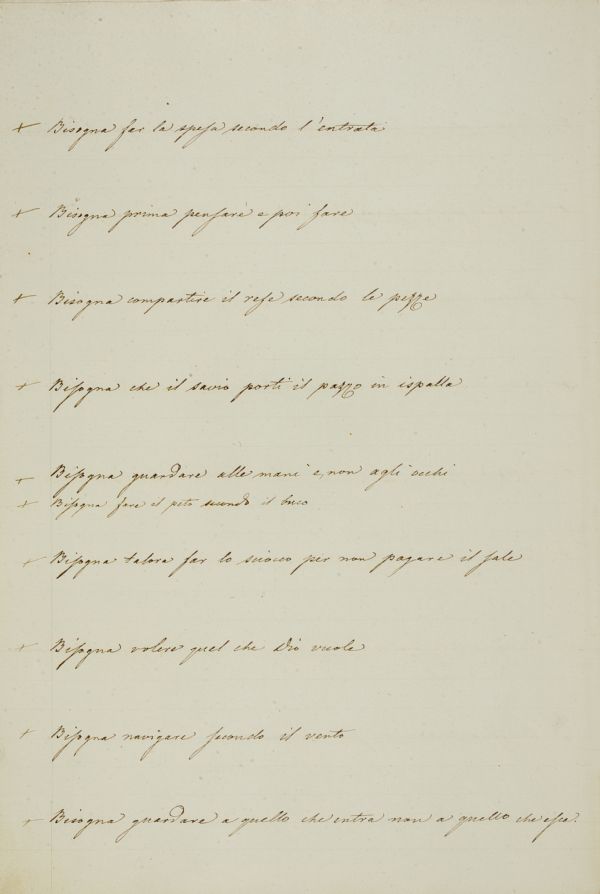 + Bisogna far la spesa secondo l'entrata
+ Bisogna prima pensare e poi fare
+ Bisogna compartire il refe secondo le pezze
+ Bisogna che il savio porti il pazzo in ispalla
+ Bisogna guardare alle mani e non agli occhi
+ Bisogna fare il peto secondo il buco
+ Bisogna talora far lo sciocco per non pagare il sale
+ Bisogna volere quel che Dio vuole
+ Bisogna navigare secondo il vento
+ Bisogna guardare a quello che entra non a quello che esca.